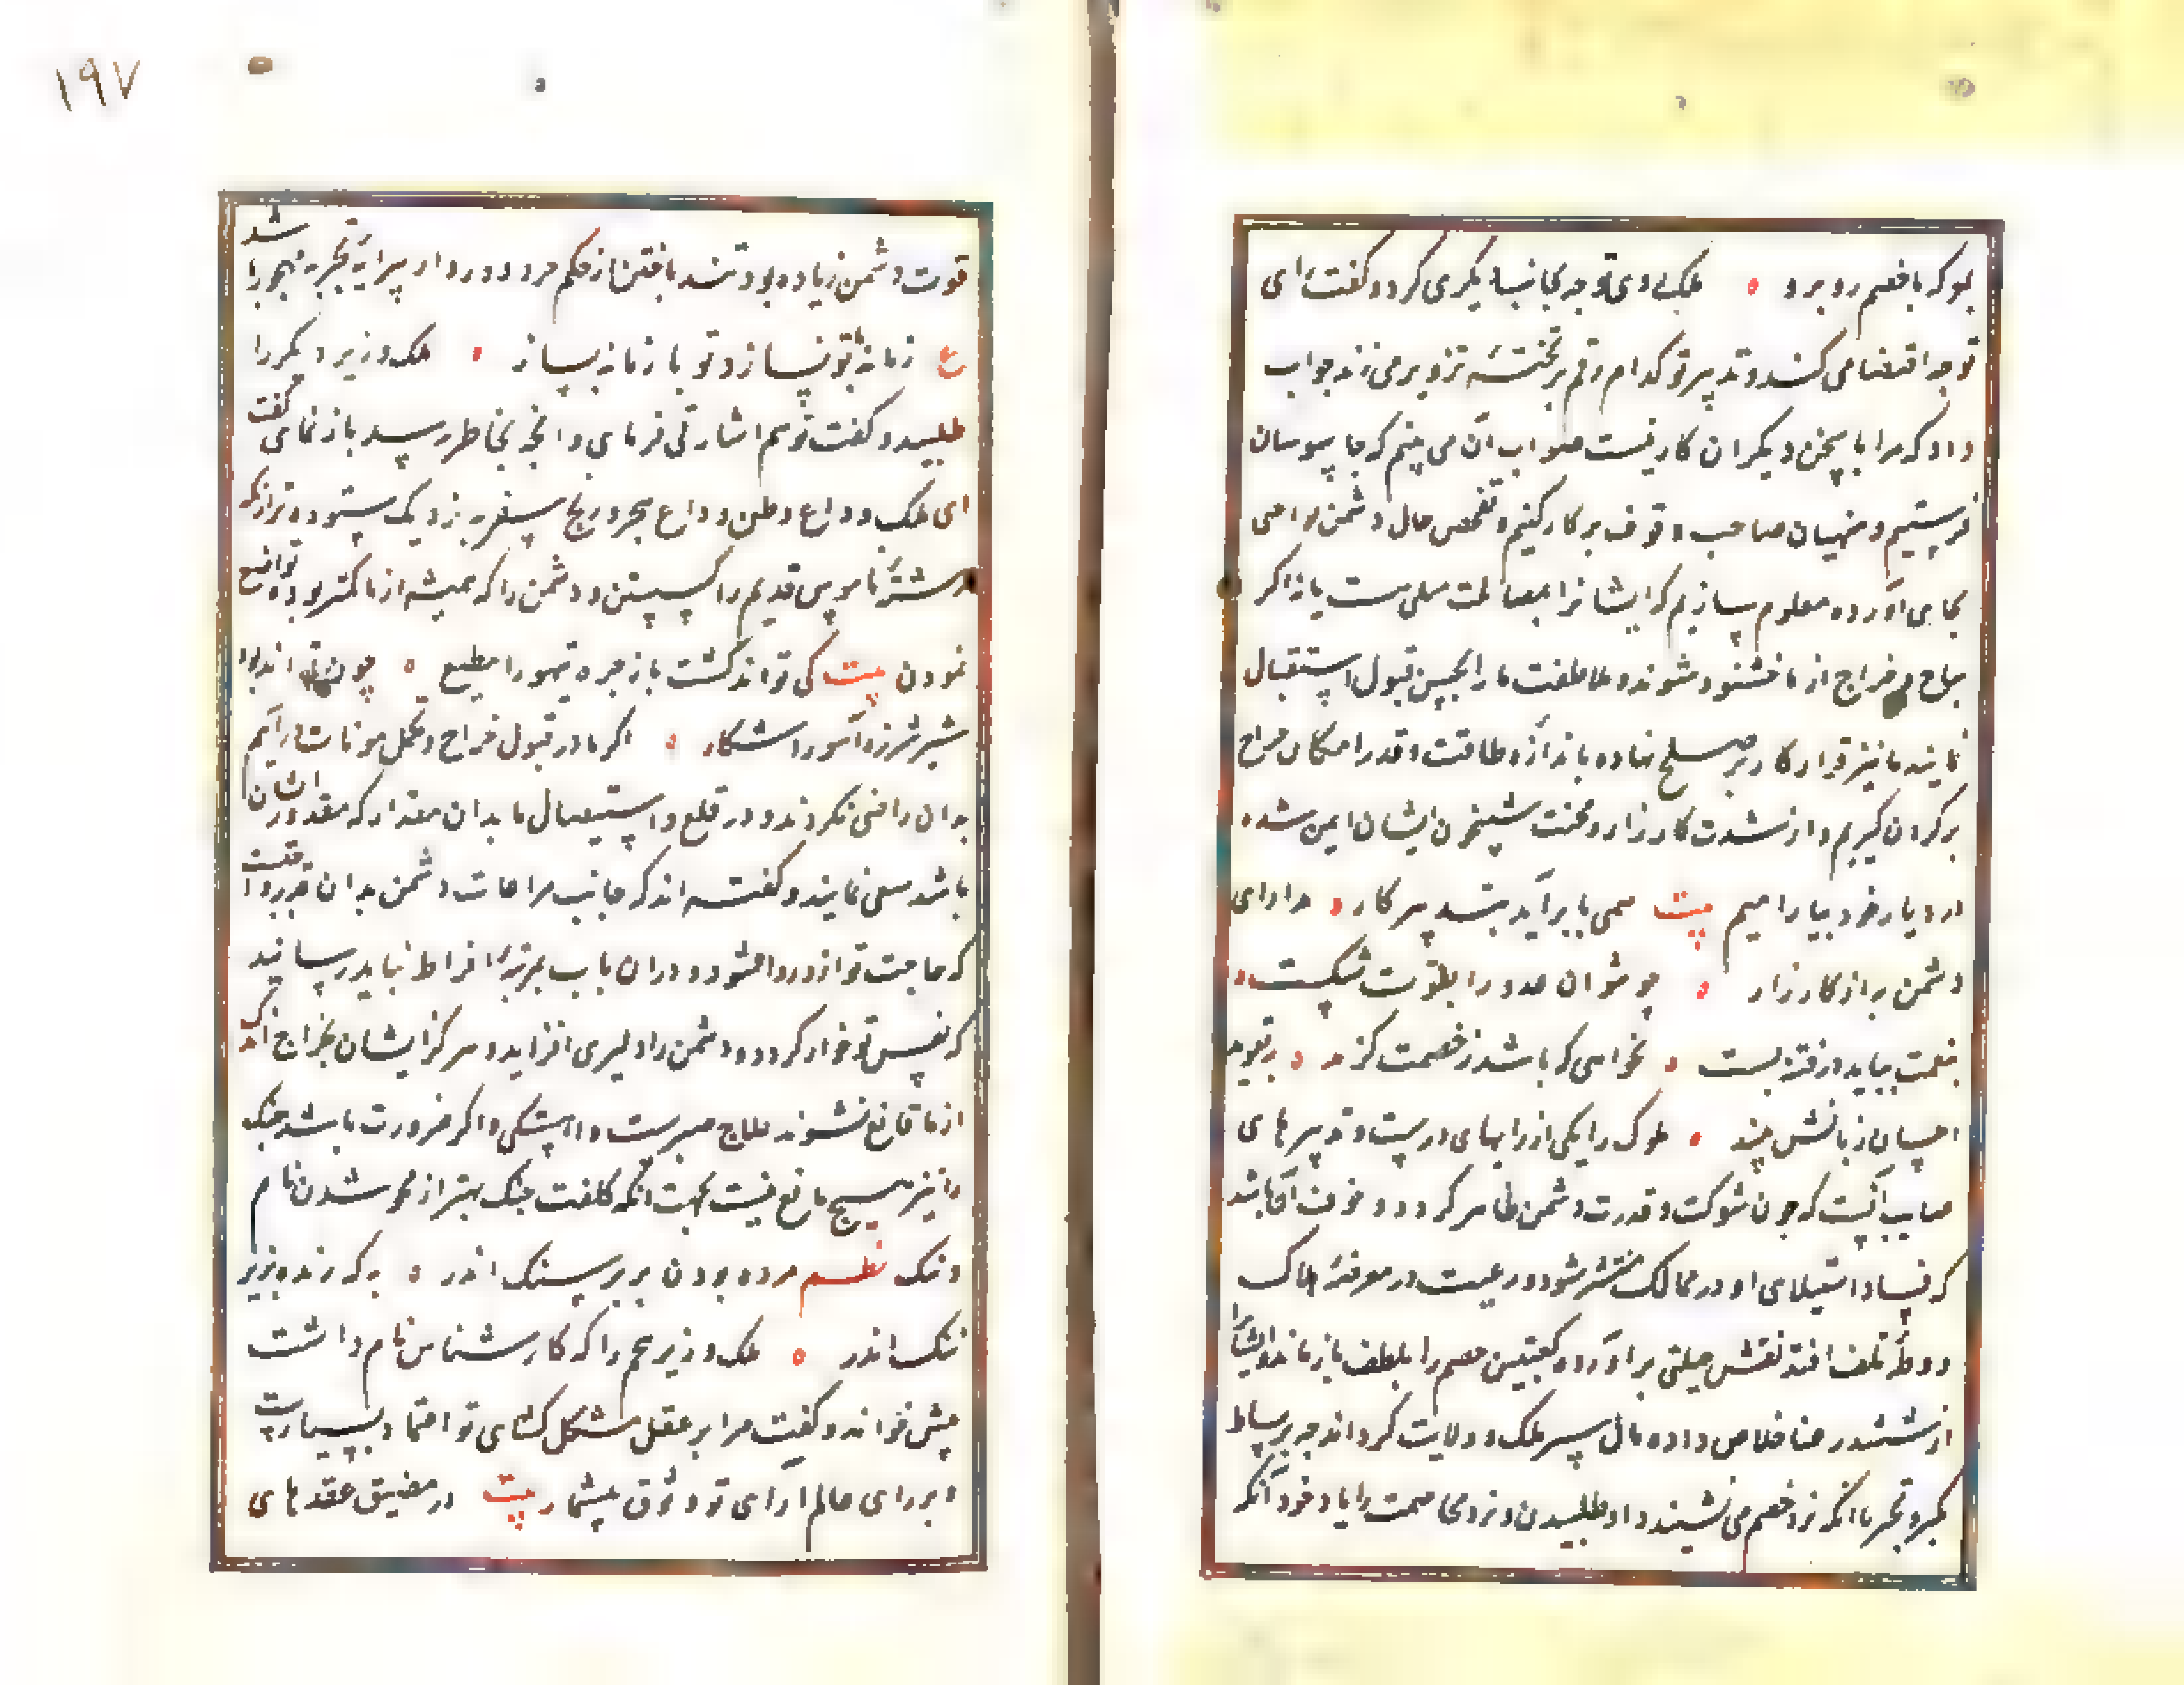 بمعرکه با خصم رو برو ملک روی توجه بجانب دیگری کرد و گفت رای
تو چه اقتضا می کند و تدبیر تو کدام رقم بر تخته تزویر می زند جواب
داد که مرا با سخن دیگران کار نیست صواب آن می بینم که جاسوسان
فرستیم و منهیان صاحب وقوف بر کار کنیم و تفحص حال دشمن بواجبی
بجای آورده معلوم سازیم که ایشانرا بمصالحت میلی هست یا نه اگر
بباج و خراج از ما خشنود شوند و ملاطفت ما را بحسن قبول استقبال
نمایند ما نیز قرار کار بر صلح نهاده باندازه طاقت و قدر امکان خراج
بر گردن گیریم و از شدت کارزار و محنت شبیخون ایشان ایمن شده
در دیار خود بیارامیم بیت همی تا برآید بتدبیر کار مدارای
دشمن به از کارزار چو نتوان عدو را بقوت شکست
بنعمت بباید در فتنه بست نخواهی که باشد ز خصمت گزند بتعویذ
احسان زبانش ببند ملوک را یکی از رایهای درست و تدبیرهای
صایب آنست که چون شوکت و قدرت دشمن ظاهر گردد و خوف آن باشد
که فساد استیلای او در ممالک منتشر شود و رعیت در معرض هلاک
و ورطه تلف افتد نقش حیلتی برآورده کعبتین خصم را بلطف باز مالد و ایشانرا
از ششدر عنا خلاص داده مال سپر ملک و ولایت گرداند چه بر بساط
کبر و تجبر با آنکه نرد خصم می نشیند داو طلبیدن و نرد مخاصمت را یاد خود آنکه
۱۹۷
قوت دشمن زیاده بود تنیده بافتن از حکم خرد دور و از پیرایه تجربه مهجور باشد
ع زمانه با تو نسازد تو با زمانه بساز ملک وزیر دیگر را
طلبید و گفت تو هم اشارتی فرمای و آنچه بخاطر رسد باز نمای گفت
ای ملک وداع وطن و داغ هجر و رنج سفر به نزدیک ستوده تر از آنکه
سررشته ناموس قدیم را گسستن و دشمن را که همیشه از ما کمتر بوده تواضع
نمودن بیت کی تواند گشت باز چره تیهو را مطیع چون تواند بود
شیر شرزه آهو را شکار اگر ما در قبول خراج و تحمل مونات درآییم
بدان راضی نگردند و در قلع و استیصال ما بدان مقدار که مقدور ایشان
باشد سعی نمایند و گفته اند که جانب مراعات دشمن بدان قدر رواست
که حاجت تو ازو روا شود و در آن باب بمرتبه افراط نباید رسانید
که نفس تو خوار گردد و دشمن را دلیری افزاید و هرگز ایشان بخراج اندک
از ما قانع نشوند علاج صبرست و آهستگی و اگر ضرورت باشد جنگ
را نیز هیچ مانع نیست بجهت آنکه کلفت جنگ بهتر از محو شدن نام
و ننگ نظم مرده بودن به زیر سنگ اندر به که زنده بزیر
ننگ اندر ملک وزیر پنجم را که کارشناس نام داشت
پیش خواند و گفت مرا بر عقل مشکل گشای تو اعتماد بسیارست
و بر رای عالم آرای تو وثوق بیشمار بیت در مضیق عقدهای